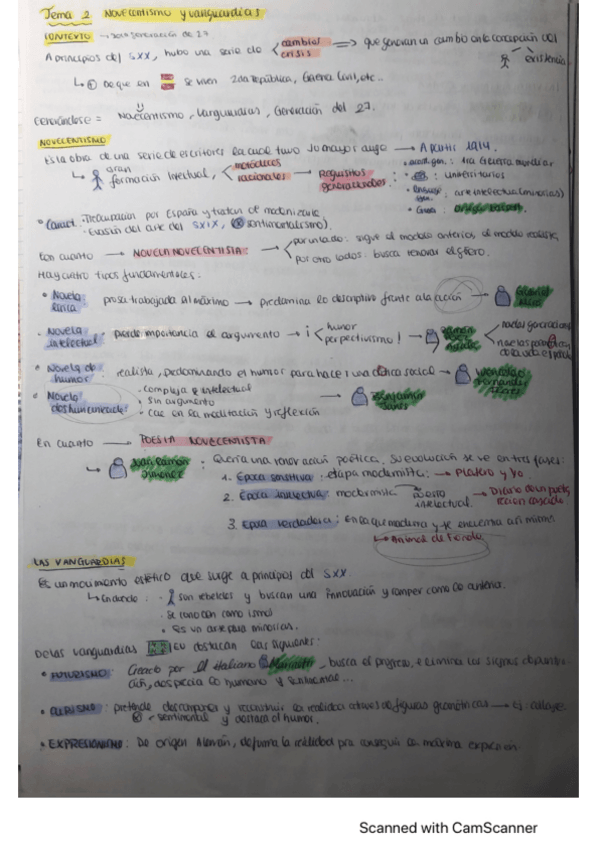 Tema 2 NOVECENTISMO y vanguardias.
CONTEXTO → generación de 27
A principios del SXX, hubo una serie de cambios crisis ⇒ que generan un cambio en la concepción del
existencia
↳ De que en se viven 2da República, Guerra Civil, etc...
Novecentismo, Vanguardias, Generación del 27.
NOVECENTISMO
Es la obra de una serie de escritores la cual tuvo su mayor auge → A partir 1914.
↳ gran formación intelectual, racionales → Requisitos generacionales
1ra Guerra mundial
universitarios
arte intelectual (minorías)
Guía: Ortega
Caract. Preocupación por España y tratan de modernizarla
Evasión del arte del SXIX, sentimentalismo).
En cuanto → NOVELA NOVECENTISTA:
por un lado: sigue el modelo anterior, el modelo realista,
por otro lados: busca renovar el género.
Hay cuatro tipos fundamentales:
• Novela lírica prosa trabajada al máximo → predomina lo descriptivo frente a la acción → Gabriel Miró
• Novela intelectual pierde importancia el argumento → humor perspectivismo! → Ramón Pérez Ayala
• Novela de humor: realista, predominando el humor para hacer una crítica social → Wenceslao Fernández Flórez
• Novela deshumanizada: · compleja e intelectual → Benjamín Jarnés
· sin argumento
· cae en la meditación y reflexión
En cuanto → POESÍA NOVECENTISTA
↳ Juan Ramón Jiménez: Quería una renovación poética. Su evolución se ve en tres fases:
1. Época sensitiva: etapa modernista: → Platero y Yo.
2. Época intelectual: modernista gusto intelectual. → Diario de un poeta recién casado
3. Época verdadera: En la que madura y se encuentra a sí mismo.
↳ Animal de Fondo.
LAS VANGUARDIAS
Es un movimiento estético que surge a principios del SXX.
↳ son rebeldes y buscan una innovación y romper como lo anterior.
· Se conocen como ismos
· Es un arte para minorías.
De las vanguardias EU destacan las siguientes:
• FUTURISMO: Creado por el italiano Marinetti, busca el progreso, elimina los signos de puntuación, desprecia lo humano y sentimental...
• CUBISMO: pretende descomponer y reconstruir la realidad a través de figuras geométricas → Ej: collage.
sentimental y el humor.
• EXPRESIONISMO: De origen Alemán, deforma la realidad pra conseguir la máxima expresión.
Scanned with CamScanner